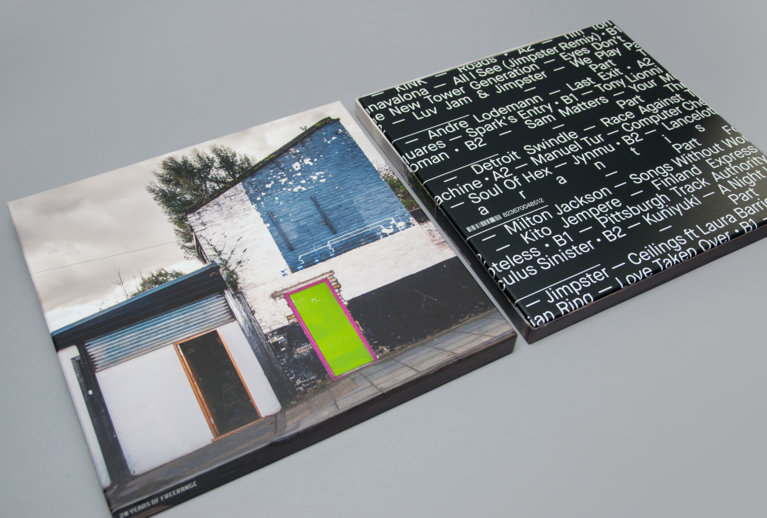 20 YEARS OF FREERANGE
KINK — Roads • A2 — Tim Toh
navalona — All I See (Jimpster Remix) • B1
e New Tower Generation — Eyes Don't
— Luv Jam & Jimpster — We Play
Part
— Andre Lodemann — Last Exit • A2
uares — Spark's Entry • B1 — Tony Lionni
oman • B2 — Sam Matters — Your M
Part
— Detroit Swindle — Race Against
achine • A2 — Manuel Tur — Computer Cha
— Soul Of Hex — Jynmu • B2 — Lancelo
Part
a r a n t
823670048512
— Milton Jackson — Songs Without Wo
— Kito Jempere — Finland Express
oteless • B1 — Pittsburgh Track Authority
ulus Sinister • B2 — Kuniyuki — A Night
Part
— Jimpster — Ceilings ft Laura Barri
ian Ring — Love Taken Over • B1